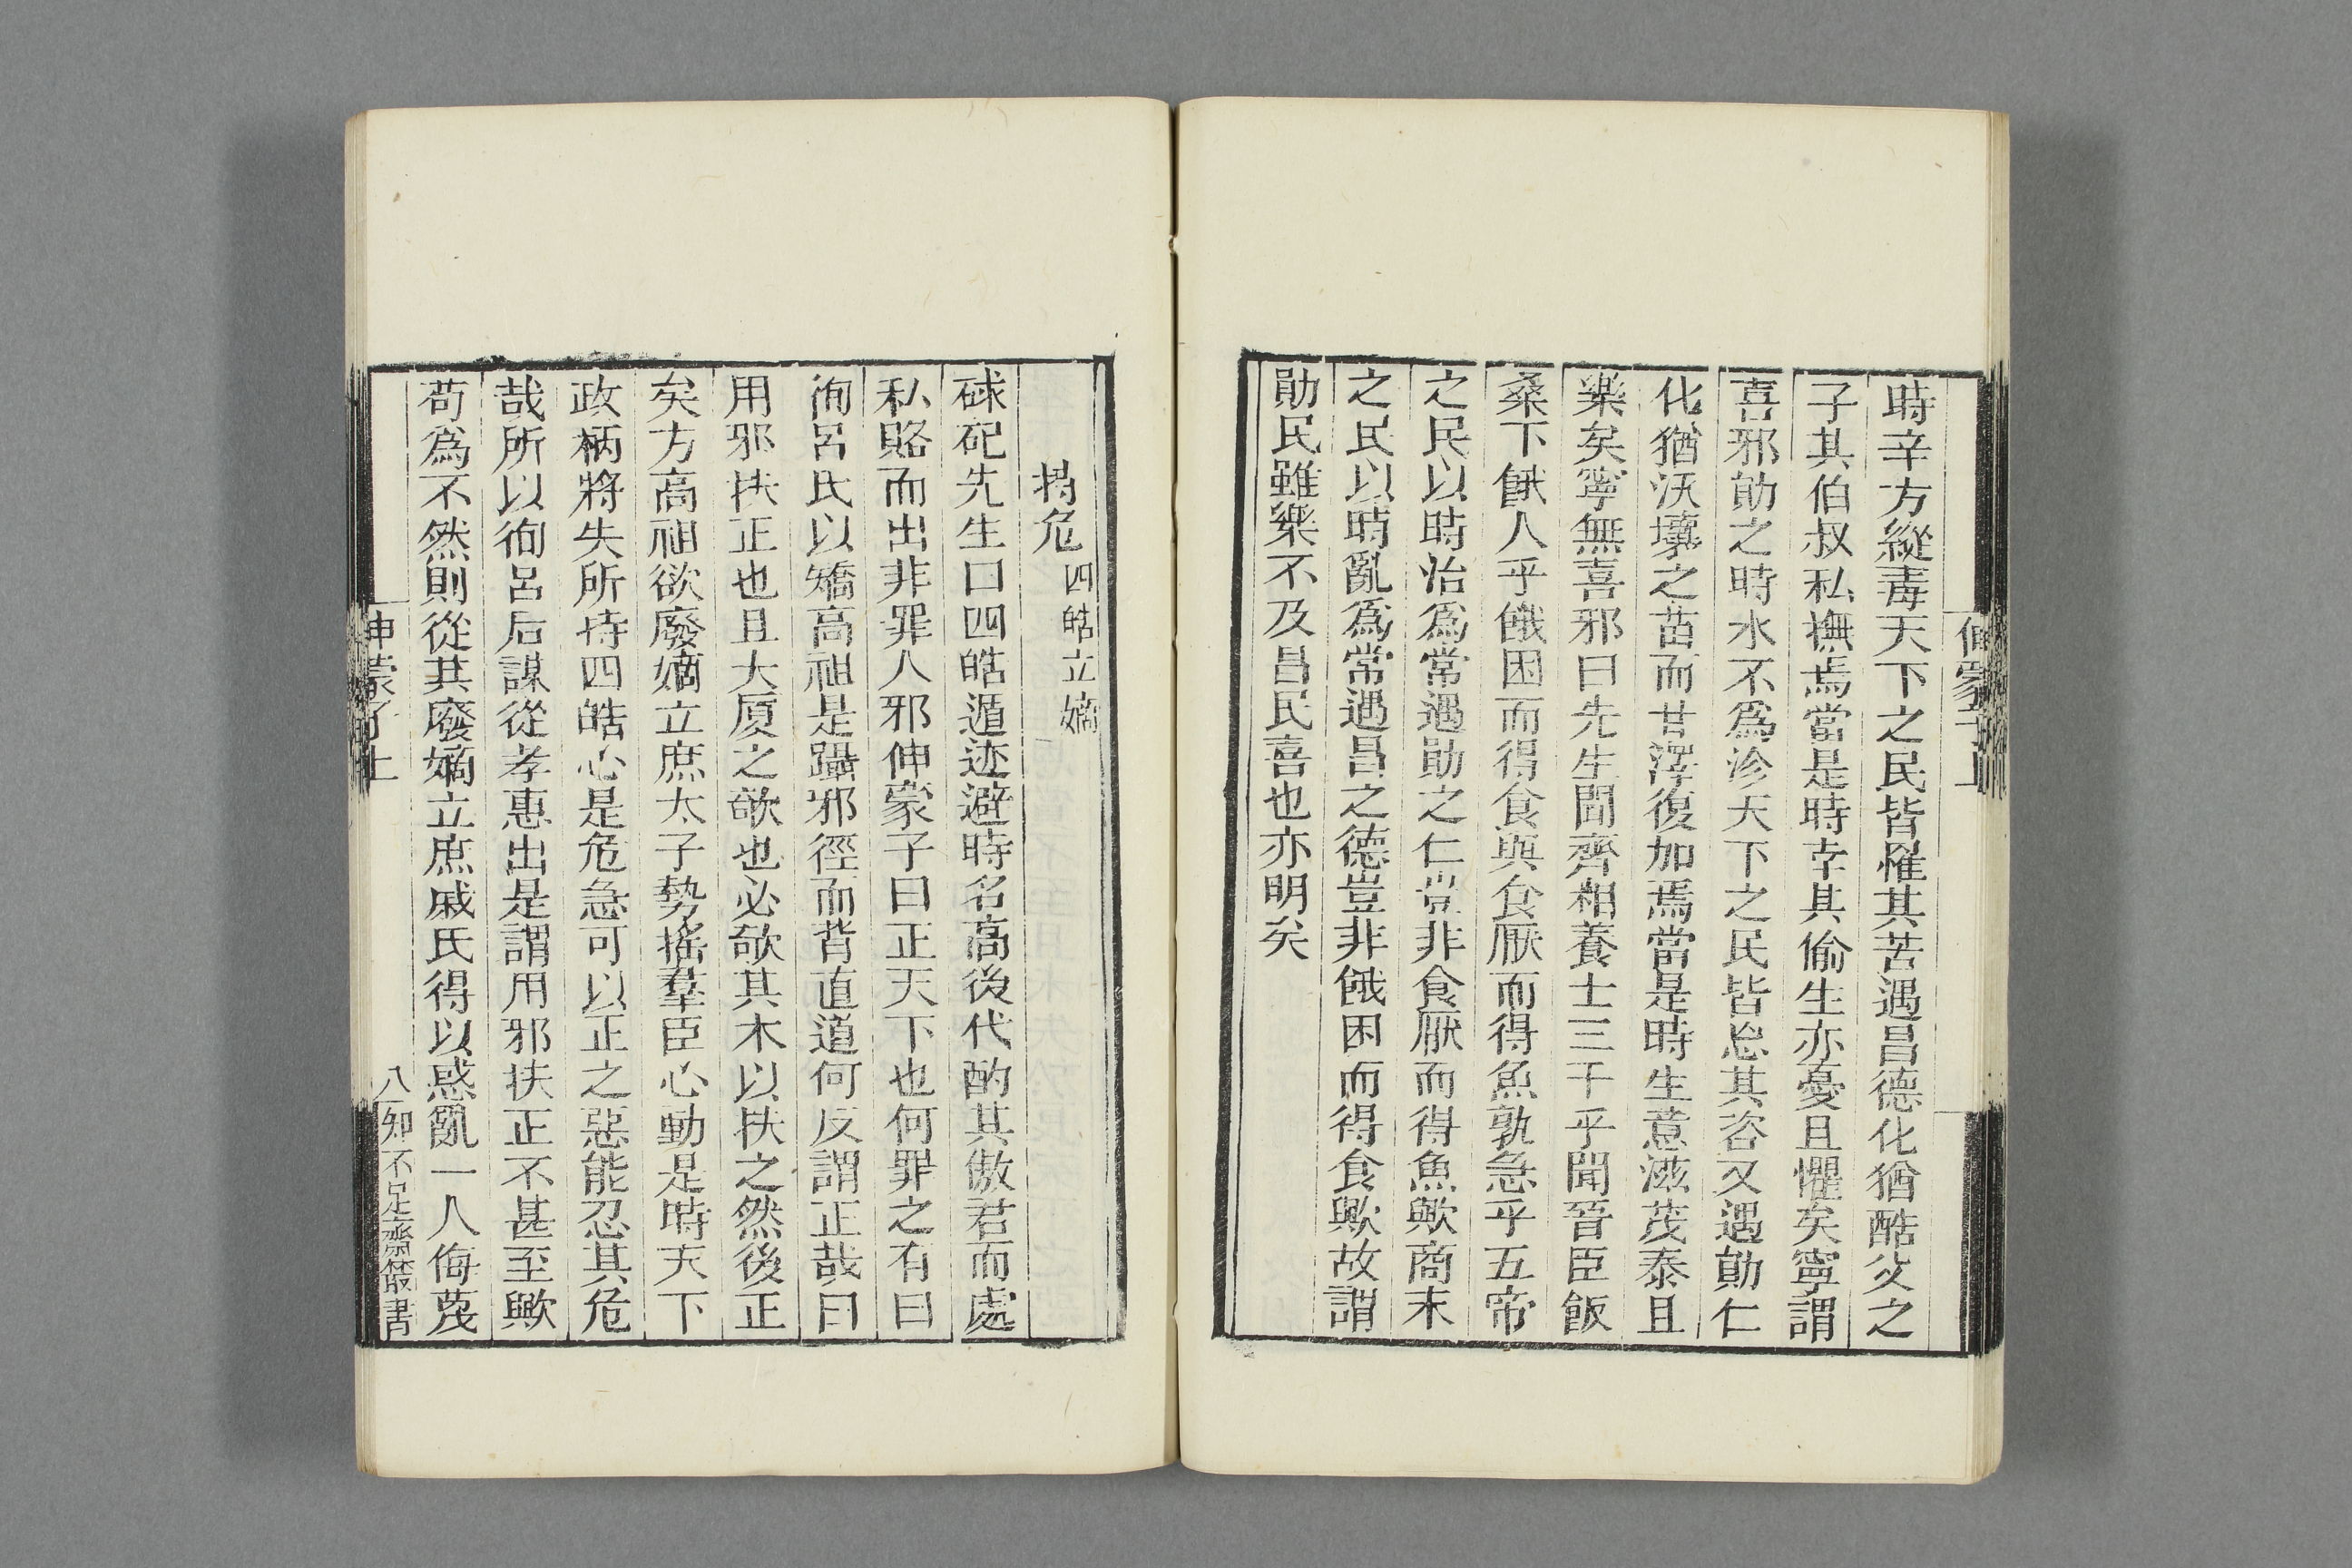 伸蒙子上
時辛方縱毒天下之民皆罹其苦遇昌德化猶酷災之
子其伯叔私撫焉當是時幸其偷生亦憂且懼矣寧謂
喜邪勛之時水不為沴天下之民皆怨其咨又遇勛仁
化猶沃壤之苗而甘澤復加焉當是時生意滋茂泰且
樂矣寧無喜邪曰先生聞齊相養士三千乎聞晉臣飯
桑下餓人乎餓困而得食與食厭而得魚孰急乎五帝
之民以時治為常遇勛之仁豈非食厭而得魚歟商末
之民以時亂為常遇昌之德豈非餓困而得食歟故謂
勛民雖樂不及昌民喜也亦明矣
危四皓立嫡
砆先生曰四皓遁迹避時名高後代酌其傲君而處
私賂而出非罪人邪伸蒙子曰正天下也何罪之有曰
徇呂氏以矯高祖是躡邪徑而背直道何反謂正哉曰
用邪扶正也且大厦之欹也必欹其木以扶之然後正
矣方高祖欲廢嫡立庶太子勢搖羣臣心動是時天下
政柄將失所持四皓心是危急可以正之惡能忍其危
哉所以徇呂后謀從孝惠出是謂用邪扶正不甚至歟
苟為不然則從其廢嫡立庶戚氏得以惑亂一人侮蔑
申蒙子上 八 知不足齋叢書